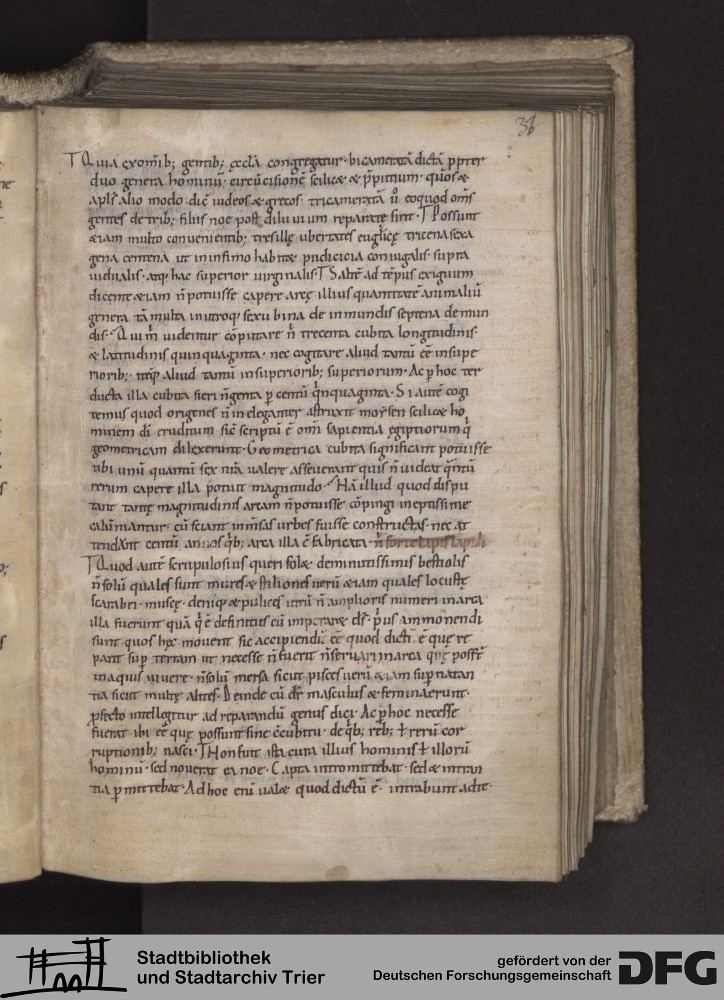 36
Quia ex om̅ib; gentib; ęccła congregatur· bicamerata̅ dicta̅ ꝓpter
duo genera hominu̅· circu̅cisione̅ scilicæ & p̅putium· quos &
apłs alio modo dic̅ iudeos & grecos· tricamerata̅ ů· eo quod om̅s
gentes de trib; filiis noe post diluuium reparatę sint· Possunt
&iam multo conuenientib; tres illę ubertates eu̅glicę tricena sexa
gena centena ut in infimo habitæ pudicicia coniugalis· supra
uidualis· atq; hac superior uirginalis· Solæ̅t ad te̅pus exiguum
dicere &iam n̅ potuisse capere arcę illius quantitate̅ animaliu̅
genera ta̅ multa in utroq; sexu bina de inmundis septena de mun
dis· Qui m̅ uidentur co̅putare n̅ trecenta cubita longitudinis·
& latitudinis quinquaginta· nec cogitare aliud tantu̅ e̅e in supe
riorib; ite̅q; aliud tantu̅ in superiorib; superiorum· Ac ꝑ hoc ter
ducta illa cubita fieri n̅genta ꝑ centu̅ q̊nquaginta· Si aute̅ cogi
temus quod origenes n̅ ineleganter astruxit moysen scilicæ ho
minem di̅ eruditum sic̅ scriptu̅ e̅ om̅i sapientia ęgiptiorum q̊
geometricam dilexerunt· Geometrica cubita significari potuisse
ubi unu̅ quantu̅ sex nr̅a ualere asseuerant quis n̅ uideat q̅ntu̅
rerum capere illa potuit magnitudo· Na̅ illud quod dispu
tant tantę magnitudinis arcam n̅ potuisse co̅pingi ineptissime
calu̅niantur· cu̅ sciant in̅msas urbes fuisse constructas· nec at
tendunt centu̅ annos q̊b; arca illa e̅ fabricata· n̅ forte lapis lapidi
Quod aute̅ scrupulosius queri solæ de minutissimis bestiolis
n̅ solu̅ quales sunt mures & stiliones ueru̅ &iam quales locustę
scarabei· muscę· deniq; & pulices utru̅ n̅ amplioris numeri in arca
illa fuerint qua̅ q̊ e̅ definitus cu̅ imperaræ ds̅· p̊us ammonendi
sunt quos hęc mouent sic accipiendu̅ e̅e quod dictu̅ e̅ quę re
punt sup̱ terram ut necesse n̅ fuerit n̅seruari in arca quę poss̅t
in aquis uiuere· n̅ solu̅ mersa sicut pisces ueru̅ &iam sup̱natan
tia sicut multę alites· Deinde cu̅ dr̅ masculus & femina erunt·
ꝓfecto intellegitur ad reparandu̅ genus dici· Ac ꝑ hoc necesse
fuerat ibi e̅e quę possunt sine c̅cubitu· de q̊b; reb; ł reru̅ cor
ruptionib; nasci· Non fuit ista cura illius hominis ł illoru̅
hominu̅· sed nouerat ea noe· Capta intromittebat· sed & intran
tia ꝑmittebat· Ad hoc eni̅ ualæ quod dictu̅ e̅· intrabunt ad te·
Stadtbibliothek
und Stadtarchiv Trier
gefördert von der
Deutschen Forschungsgemeinschaft
DFG